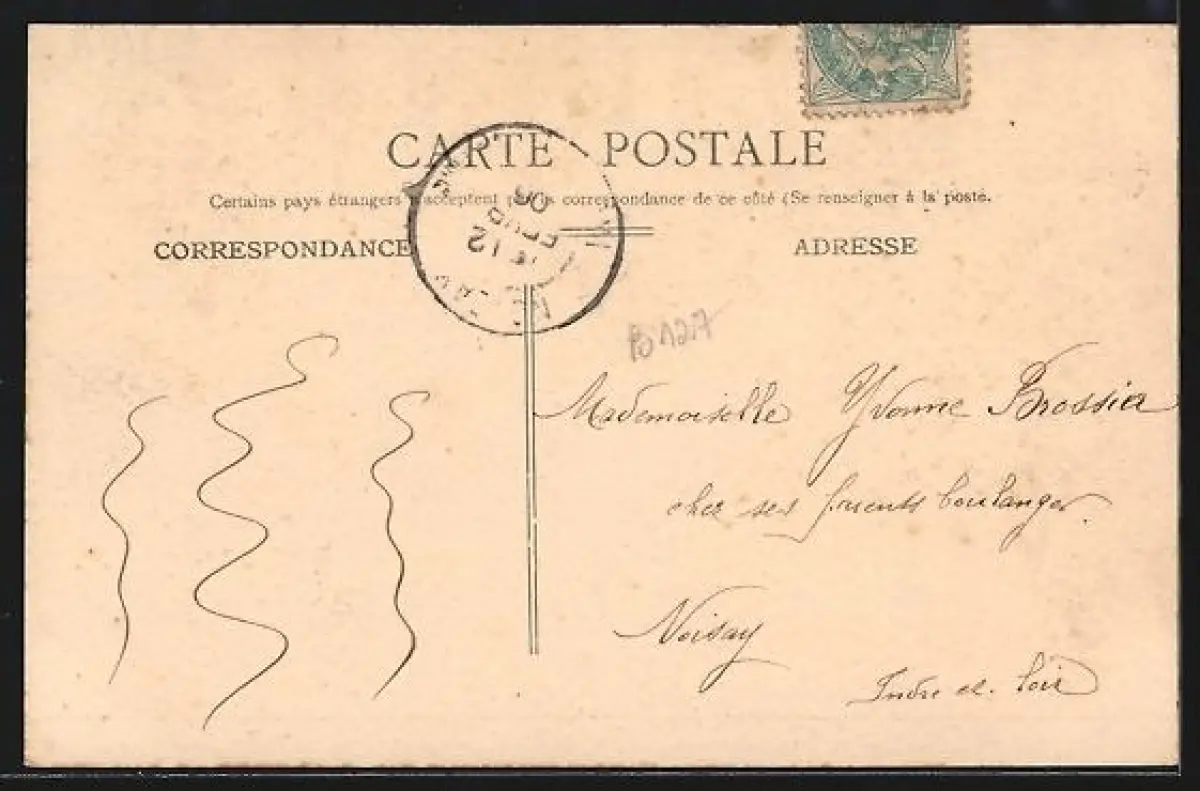 CARTE POSTALE
Certains pays étrangers n'acceptent pas la correspondance de ce côté (Se renseigner à la poste.
CORRESPONDANCE
ADRESSE
12
Mademoiselle Yvonne Brossier
chez ses parents boulanger
Noizay
Indre et Loir